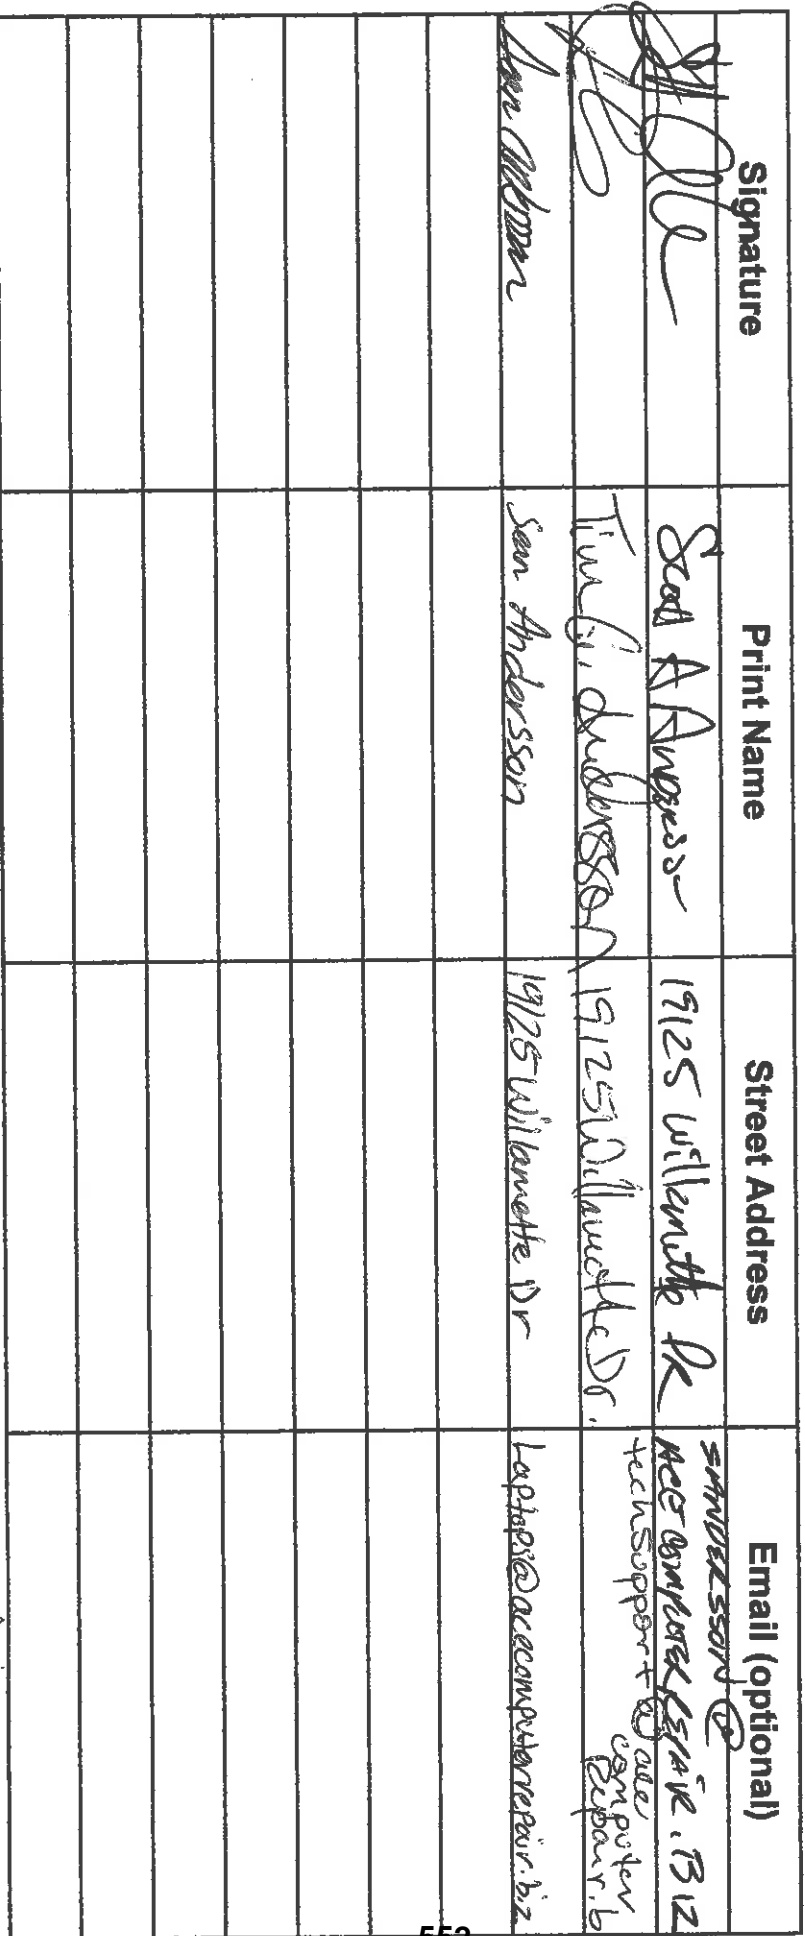 Signature Print Name Street Address Email (optional)
Scott A Andersson 19125 Willamette DR SANDERSSON@
ACECOMPUTERREPAIR.BIZ
Tim G. Andersson 19125 Willamette Dr. techsupport@ace
computer
repair.b
Sean Andersson 19125 Willamette Dr Laptops@acecomputerrepair.biz
552